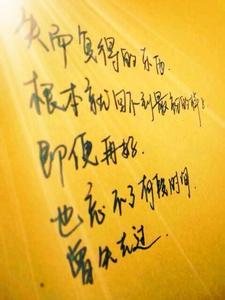 失而复得的东西.
根本就回不到最初的样子
即便再好.
也忘不了有段时间.
曾失去过.